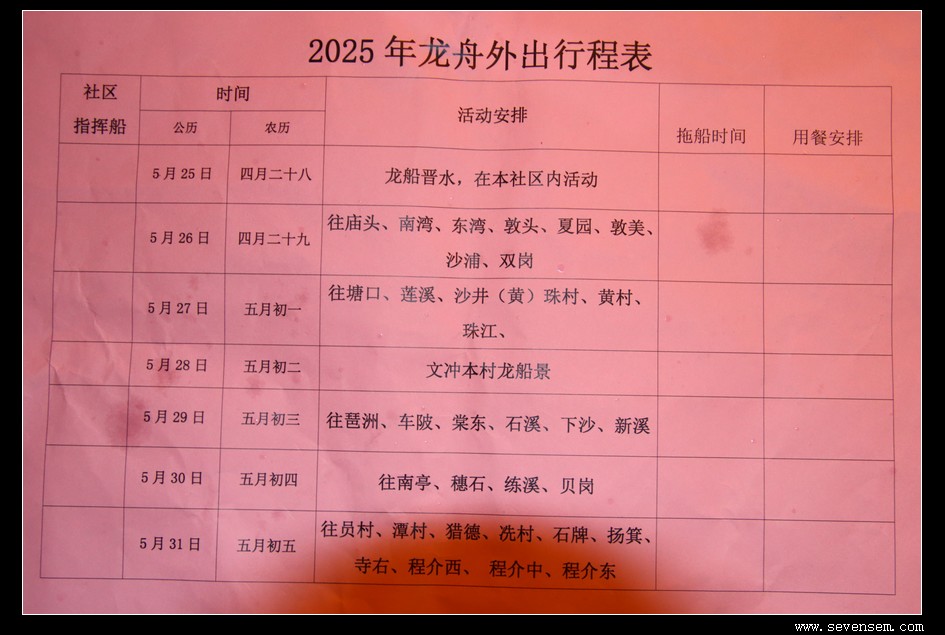 2025 年龙舟外出行程表
社区
指挥船
时间
公历
农历
活动安排
拖船时间
用餐安排
5 月 25 日
四月二十八
龙船晋水，在本社区内活动
5 月 26 日
四月二十九
往庙头、南湾、东湾、敦头、夏园、敦美、
沙浦、双岗
5 月 27 日
五月初一
往塘口、莲溪、沙井（黄）珠村、黄村、
珠江、
5 月 28 日
五月初二
文冲本村龙船景
5 月 29 日
五月初三
往琶洲、车陂、棠东、石溪、下沙、新溪
5 月 30 日
五月初四
往南亭、穗石、练溪、贝岗
5 月 31 日
五月初五
往员村、潭村、猎德、冼村、石牌、扬箕、
寺右、程介西、 程介中、程介东
www.sevensem.com